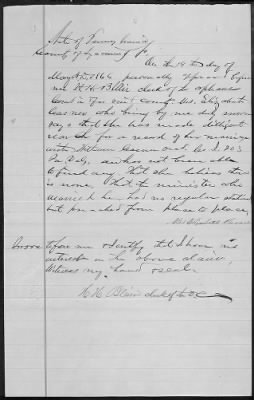 State of Pennsylvania
County of Lycoming ss.
On the 14 th day of
March 1864, personally appeared before
me H H Blair clerk of the orphans
Court in for said County Mrs. Elizabeth
who being by me duly sworn
says that she has made diligent
search for a record of her marriage
with William Co. I. 203
Pa. Vols, has not been able
to find any that she believes there
is none, That the minister who
married her, had no regular station
but preached from place to place,
Mrs Elizabeth
Sworn before me I certify that I have no
interest in the above claim,
Witness my hand & seal.
H. H. Blair clerk of the O. C.